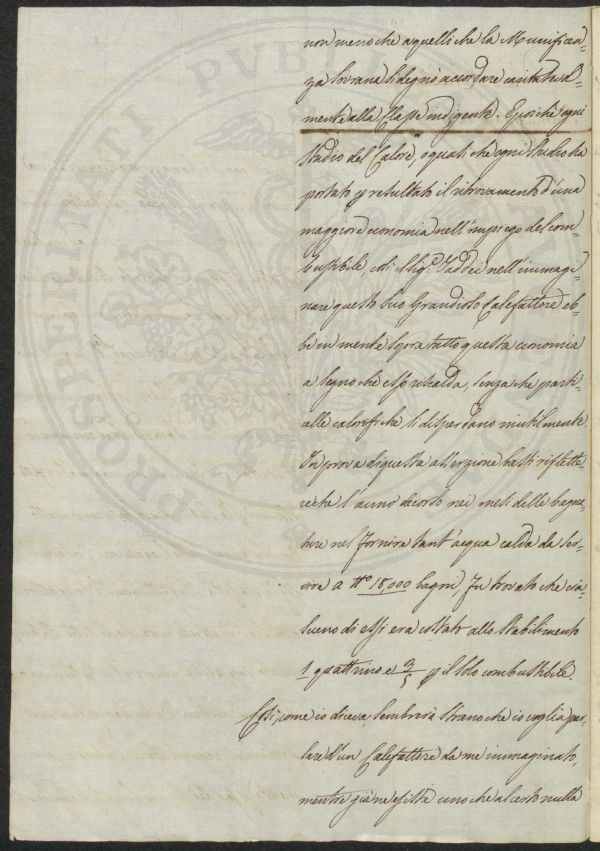 non meno che a quelli che la Munificen=
za Sovrana si degnò accordare caritatevol=
mente alla Classe indigente. E poichè ogni
Studio del Calore, o quasi che ogni Studio ha
portato p resultato il ritrovamento d'una
maggiore economia nell'impiego del com=
bustibile, così il Sig.e Taddei nell'immagi=
nare questo suo Grandioso Calefattore eb=
be in mente sopra tutto questa economia
a segno che esso riscalda, senza che parti=
celle calorifiche si disperdano inutilmente.
In prova di questa asserzione basti riflette=
re che l'anno decorso nei mesi delle bagna=
ture nel fornire tant'acqua calda da ser=
vire a No 18,000 bagni, fu trovato che cia=
scuno di essi era costato allo Stabilimento
1 quattrino e 3/5 p il solo combustibile.
Così, come io diceva, sembrerà strano che io voglia par=
lare d'un Calefattore da me immaginato,
mentre già ne esiste uno che al certo nulla
PROSPERITATI PVBLI